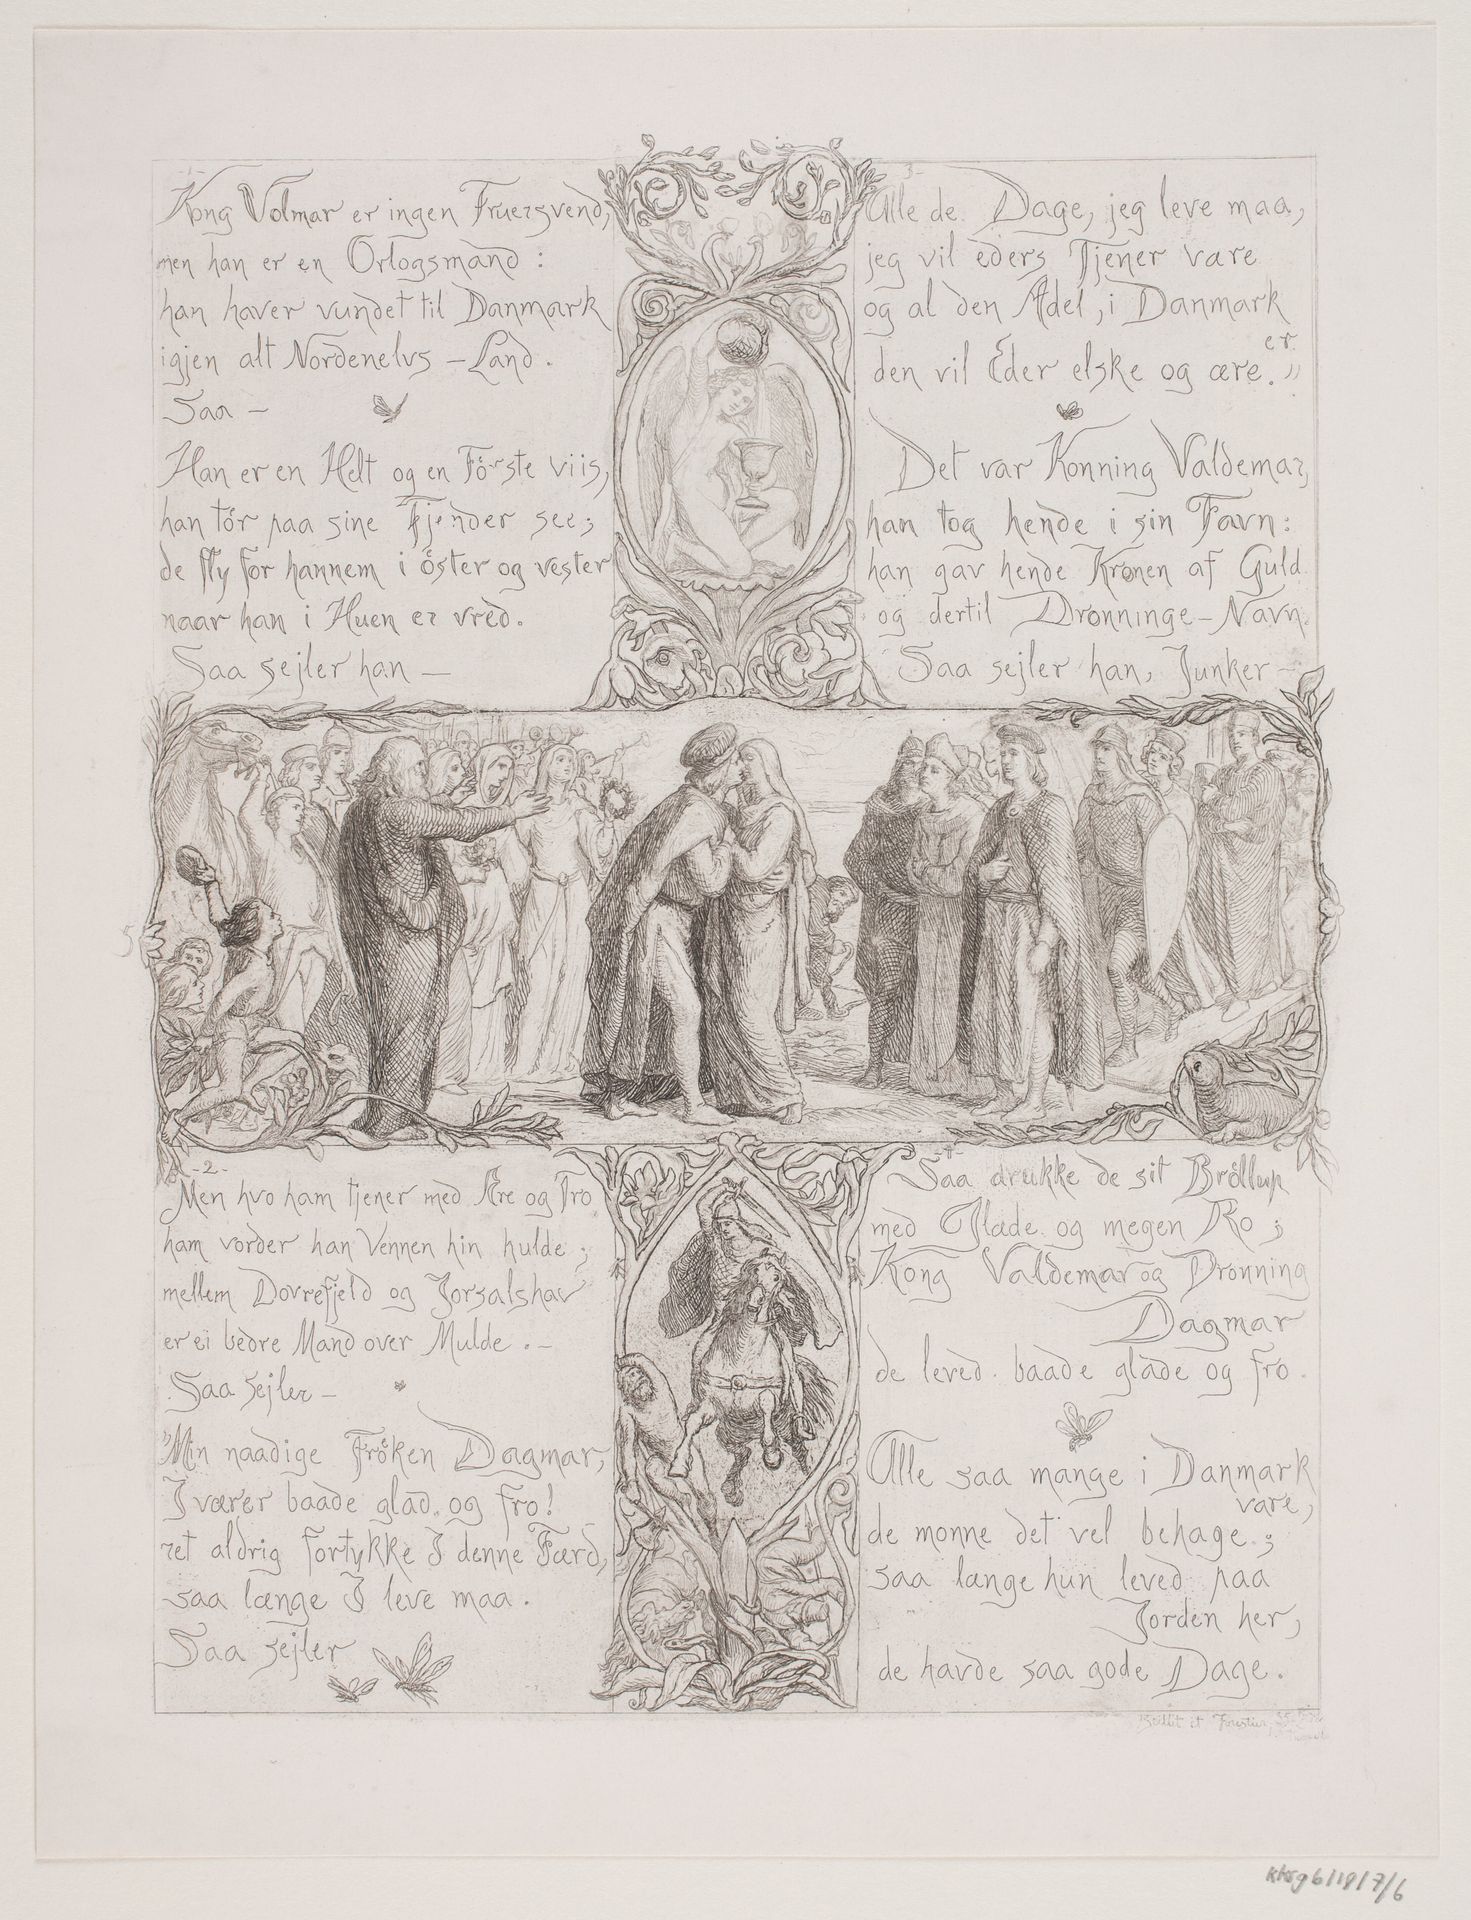 -1-
Kong Volmar er ingen Fruersvend,
men han er en Orlogsmand :
han haver vundet til Danmark
igjen alt Nordenelvs - Land.
Saa -
Han er en Helt og en Förste viis,
han tör paa sine Fjender see;
de fly for hannem i öster og vester
naar han i Huen er vred.
Saa sejler han -
-2-
Men hvo ham tjener med Ære og Tro
ham vorder han Vennen hin hulde ;
mellem Dovrefjeld og Jorsalshav
er ei bedre Mand over Mulde . -
Saa sejler -
"Min naadige Fröken Dagmar,
I værer baade glad og fro!
ret aldrig fortykke I denne Færd,
saa længe I leve maa.
Saa sejler
3-
Alle de Dage, jeg leve maa,
jeg vil eders Tjener være
og al den Adel, i Danmark
er
den vil Eder elske og ære."
Det var Konning Valdemar,
han tog hende i sin Favn:
han gav hende Kronen af Guld
og dertil Dronninge-Navn.
Saa sejler han, Junker -
-4-
Saa drukke de sit Bröllup
med Glæde og megen Ro ;
Kong Valdemar og Dronning
Dagmar
de leved baade glade og fro.
Alle saa mange i Danmark
vare,
de monne det vel behage ;
saa længe hun leved paa
Jorden her,
de havde saa gode Dage.
5
kksg6/19/7/6